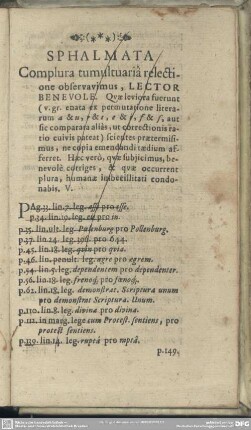 (***)
SPHALMATA
Complura tumultuariâ relecti-
one observavimus, LECTOR
BENEVOLE. Quæ leviora fuerunt
(v.gr. enata ex permutatione litera-
rum a & u, r & t, e & s, f & s, aut
sic comparata aliàs, ut correctionis ra-
tio cuivis pateat) scientes prætermisi-
mus, ne copia emendandi tædium af-
ferret. Hæc verò, quæ subjicimus, be-
nevolè corriges, & quæ occurrent
plura, humanæ imbecillitati condo-
nabis. V.
PAg. 33. lin. 7. leg. esse pro esse.
p.34. lin. 19. leg. eu pro in.
p.35. lin. ult. leg. Palenburg pro Pollenburg.
p.37. lin. 24. leg. pro 654.
p.45. lin. 18. leg. pro quia.
p.46. lin. penult. leg. ægre pro agrem.
p.54. lin. 5. leg. dependentem pro dependenter.
p.56. lin. 18. leg. pro
p.62. lin. 18. leg. demonstrat. Scriptura unum
pro demonstrat Scriptura. Unum.
p.110. lin. 8. leg. divina pro divina.
p.112. in marg. lege cum Protest. sentiens, pro
protest sentiens.
p.139. lin. 14. leg. ruptâ pro raptâ.
p.149.